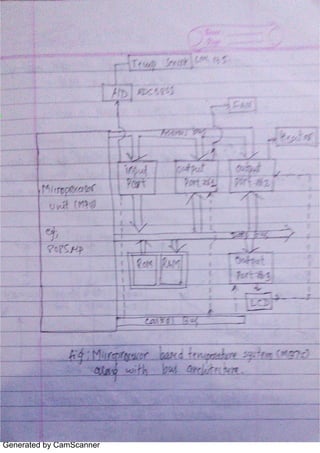 Temp Sensor
A/D
FAN
Address bus
Heater
Input
Port
output
Port #1
Output
Port #2
Microprocessor
Unit (MPU)
eg,
8085 MP
Data Bus
ROM
RAM
Output
Port #3
LCD
Control Bus
Fig: Microprocessor based temperature system (MBTS)
along with bus architecture.
Generated by CamScanner